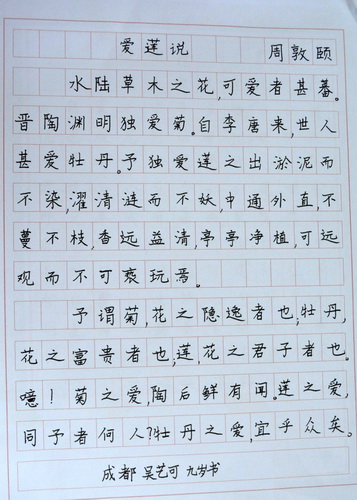 爱莲说 周敦颐
水陆草木之花,可爱者甚蕃。
晋陶渊明独爱菊。自李唐来,世人
甚爱牡丹。予独爱莲之出淤泥而
不染,濯清涟而不妖,中通外直,不
蔓不枝,香远益清,亭亭净植,可远
观而不可亵玩焉。
予谓菊,花之隐逸者也;牡丹,
花之富贵者也;莲,花之君子者也。
噫!菊之爱,陶后鲜有闻。莲之爱,
同予者何人?牡丹之爱,宜乎众矣。
成都 吴艺可 九岁书